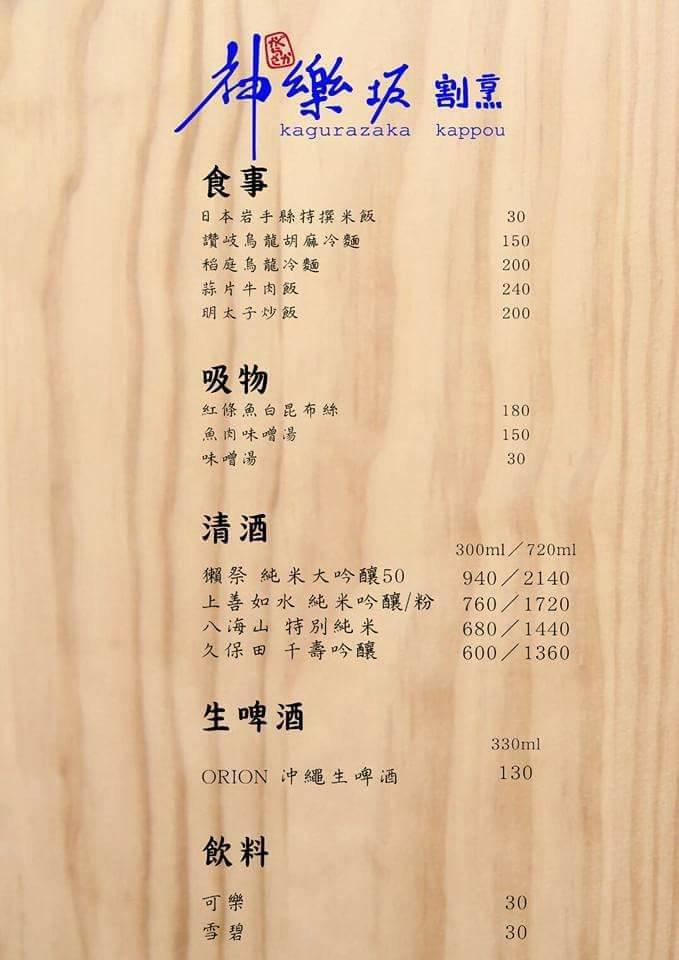 かぐらざか
神樂坂 割烹
kagurazaka kappou
食事
日本岩手縣特撰米飯 30
讚岐烏龍胡麻冷麵 150
稻庭烏龍冷麵 200
蒜片牛肉飯 240
明太子炒飯 200
吸物
紅條魚白昆布絲 180
魚肉味噌湯 150
味噌湯 30
清酒
300ml／720ml
獺祭 純米大吟釀50 940／2140
上善如水 純米吟釀/粉 760／1720
八海山 特別純米 680／1440
久保田 千壽吟釀 600／1360
生啤酒
330ml
ORION 沖繩生啤酒 130
飲料
可樂 30
雪碧 30